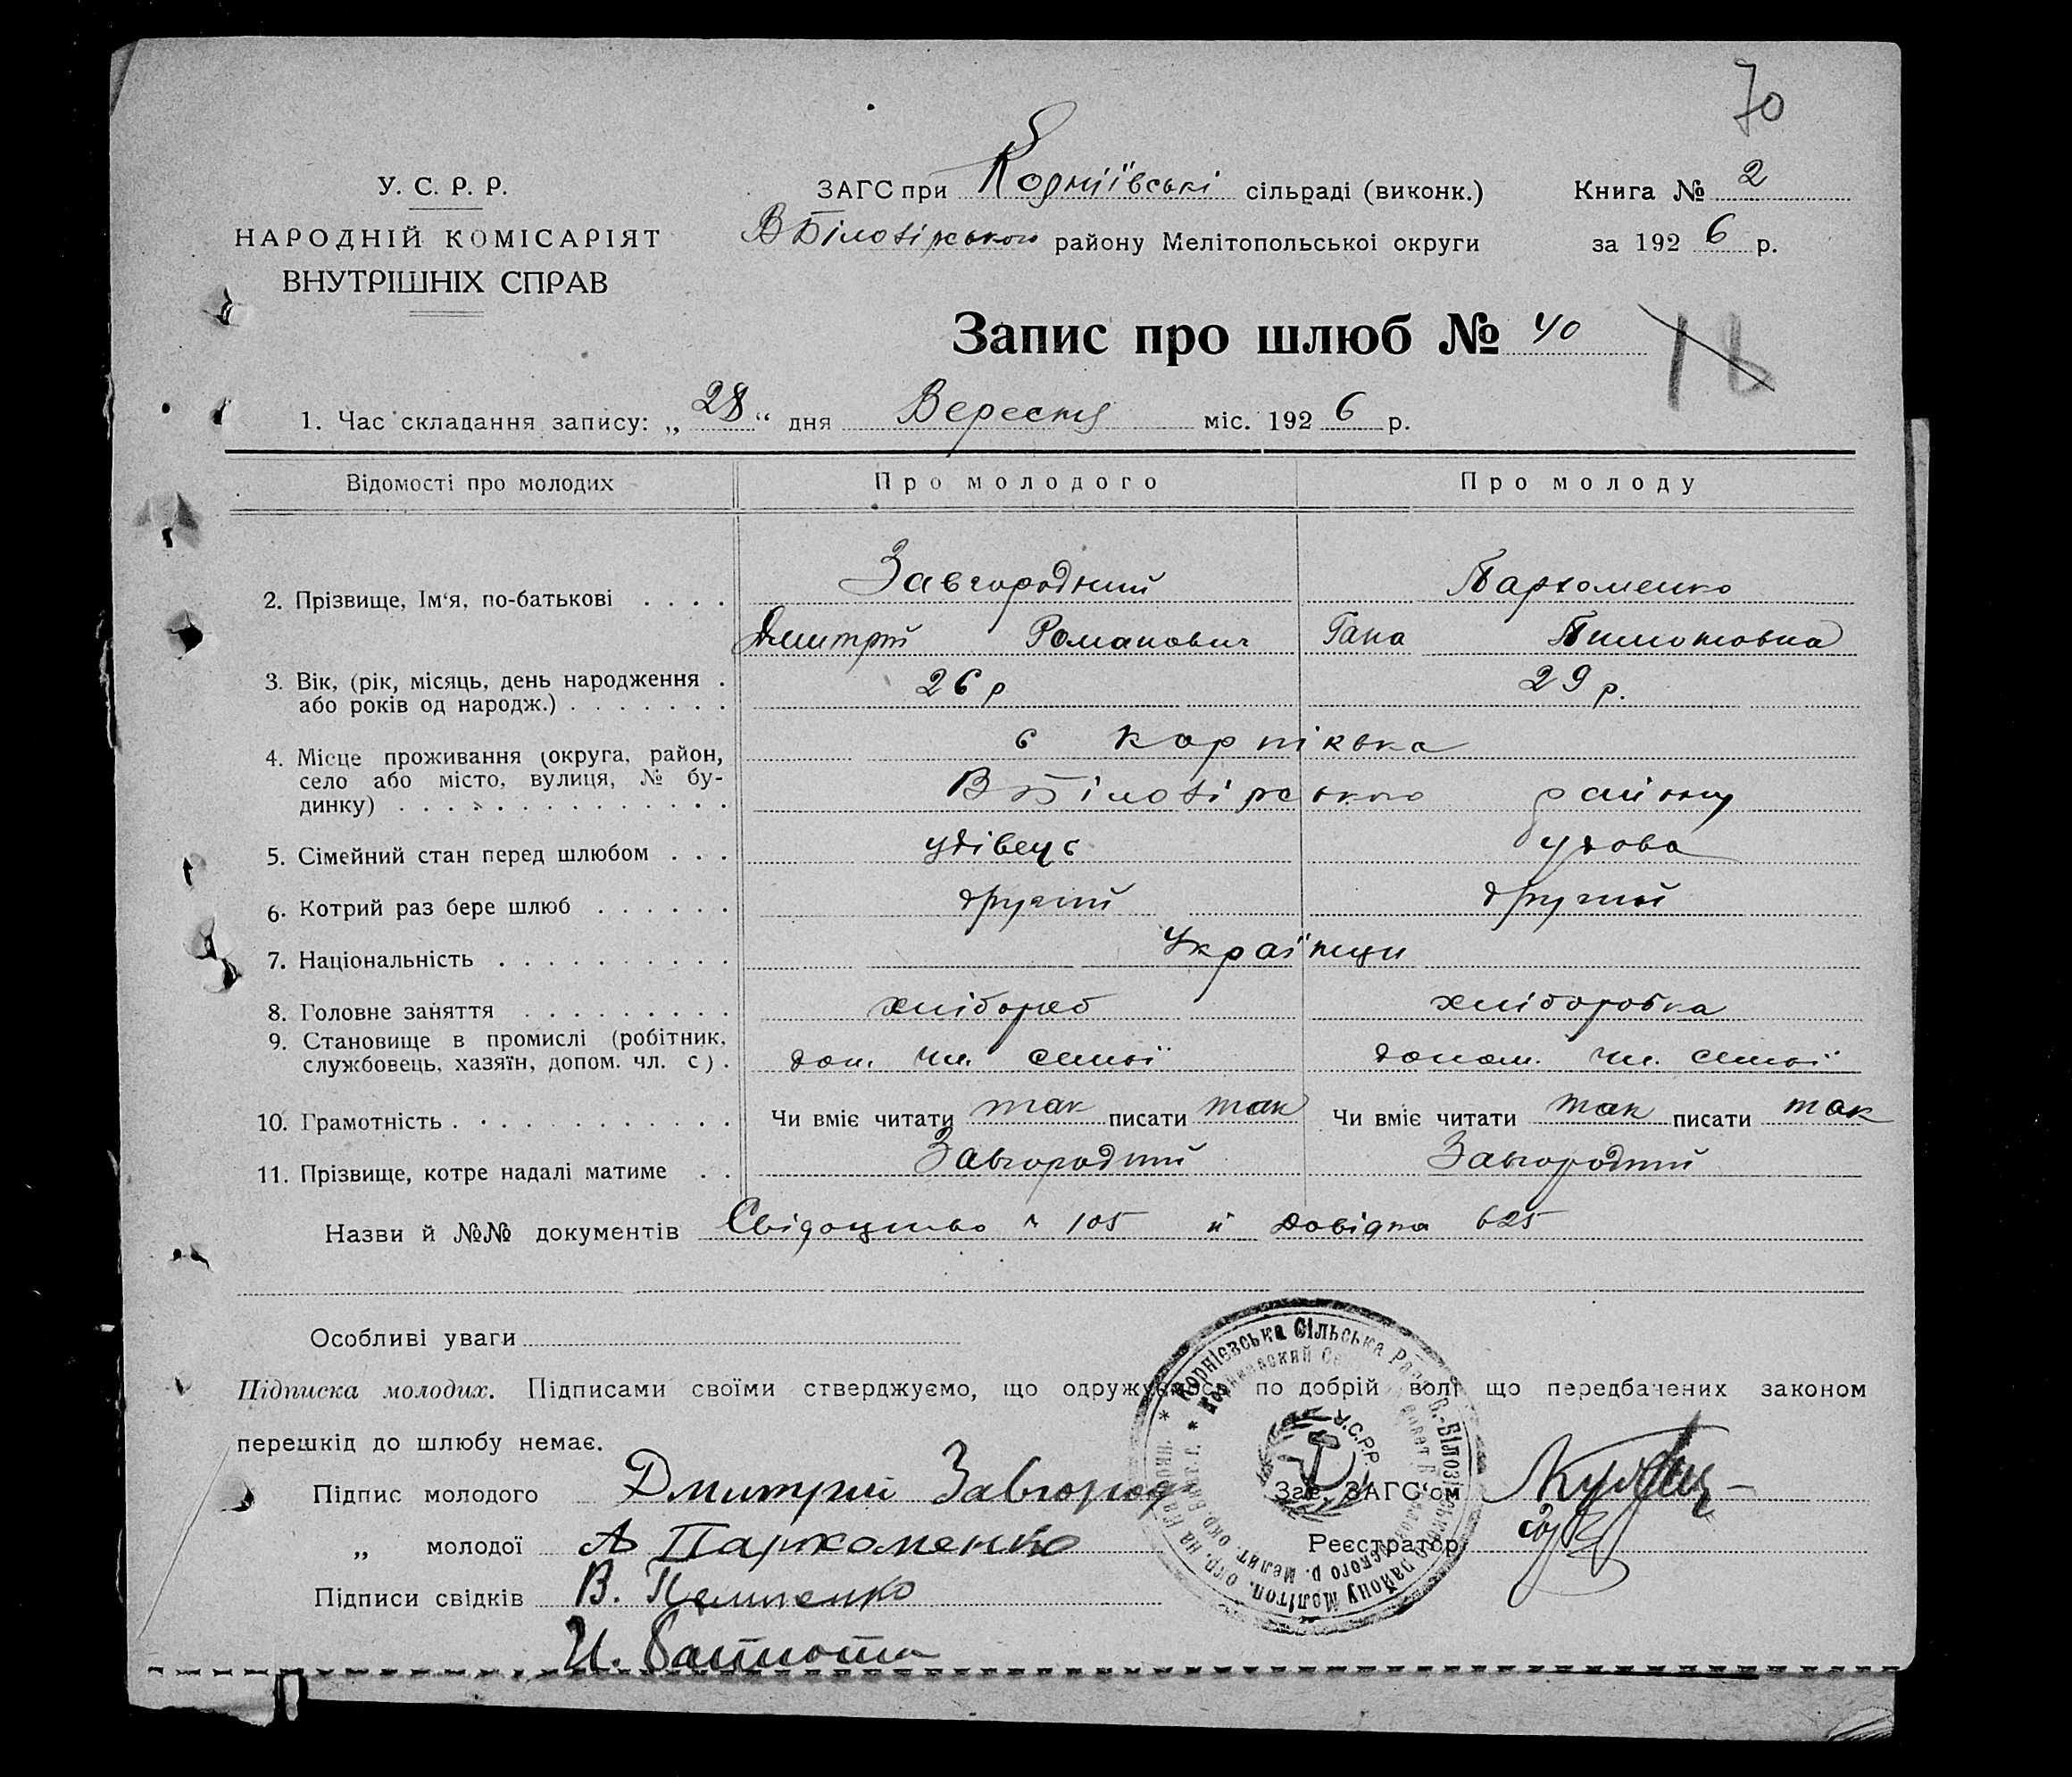 70
У. С. Р. Р.
НАРОДНІЙ КОМІСАРІЯТ
ВНУТРІШНІХ СПРАВ
ЗАГС при Корніївські сільраді (виконк.)
ВБілозірського району Мелітопольської округи
Книга № 2
за 1926 р.
Запис про шлюб № 40
1. Час складання запису: „ 28 “ дня Вересня міс. 1926 р.
Відомості про молодих Про молодого Про молоду
2. Прізвище, Ім‘я, по-батькові . . . . Завгородний Пархоменко
Дмитрий Романович Гана
3. Вік, (рік, місяць, день народження . 26 р 29 р.
або років од народж.) . . . . . . .
4. Місце проживання (округа, район, с Корніївка
село або місто, вулиця, № бу- ВБілозірського району
динку) . . . . . . . . . . . . . .
5. Сімейний стан перед шлюбом . . . удівець удова
6. Котрий раз бере шлюб . . . . . . другий другий
7. Національність . . . . . . . . . . Українци
8. Головне заняття . . . . . . . . . хлібороб хліборобка
9. Становище в промислі (робітник,
службовець, хазяїн, допом. чл. с) . доп. чл. семьї допом. чл. семьї
10. Грамотність . . . . . . . . . . . Чи вміє читати так писати так Чи вміє читати так писати так
11. Прізвище, котре надалі матиме . . Завгородний Завгородний
Назви й №№ документів Свідоцтво № 105 й довідка 625
Особливі уваги
Підписка молодих. Підписами своїми стверджуємо, що одружуємось по добрій волі що передбачених законом
перешкід до шлюбу немає.
Підпис молодого Дмитрий Завгород
„ молодої А Пархоменко
Підписи свідків В.
И.
Зав. ЗАГС‘ом
Реєстратор
* Корнієвська Сільська Рада В.-Білозірського району Мелітоп. окр. на Катерин.
У.С.Р.Р.